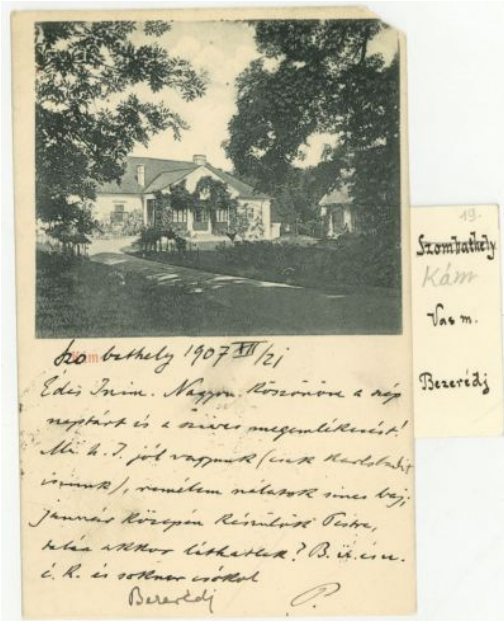 Szombathely 1907 XII/21
Édes Inim. Nagyon köszönöm a szép
naptárt és a szives megemlékezést!
Mi h. I. jól vagyunk (csak Karlsbadit
iszunk), remélem nálatok sincs baj,
január közepén készülünk Pestre,
talán akkor láthatlak? B.
é. K. és sokszor csókol
P.
Bezerédj
19.
Szombathely
Kám
Vas m.
Bezerédj